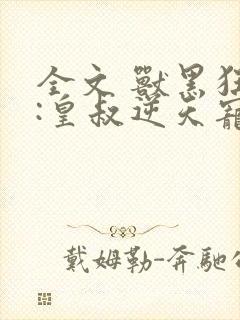 全文 獸黑狂
:皇叔逆天寵
戴姆勒-奔馳公